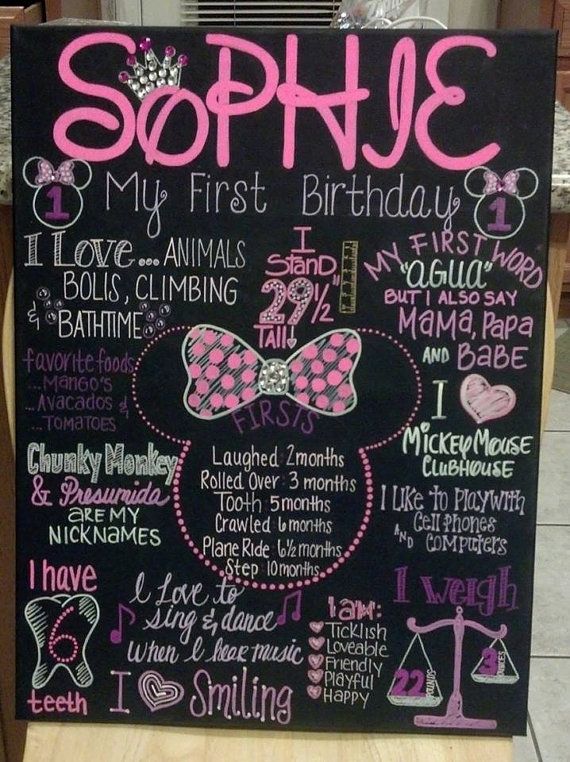 SOPHIE
1
My First Birthday
1
I Love... ANIMALS
BOLIS, CLIMBING
& BATHTIME
I
Stand
29½"
TALL
MY FIRST WORD
"AGUA"
BUT I ALSO SAY
MAMA, PAPA
AND BABE
favorite foods
...MANGO'S
...AVACADOS &
...TOMATOES
FIRSTS
Laughed 2months
Rolled Over: 3 months
Tooth 5months
Crawled 6months
Plane Ride 6½months
Step 10months
I
Mickey Mouse
Clubhouse
Chunky Monkey
& Presumida
are my
nicknames
I Like to Play with
Cell Phones
AND Computers
I have
6
teeth
I Love to
sing & dance
when I hear music
I Smiling
I am:
Ticklish
Loveable
Friendly
Playful
Happy
I weigh
22 POUNDS